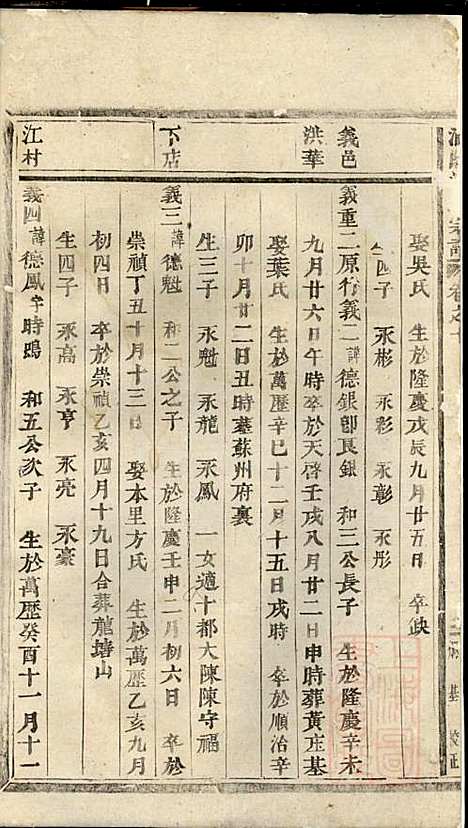 娶吳氏 生於隆慶戊辰九月廿五日 卒缺
生四子 永彬 永彩 永彰 永彤
義邑
洪華
義重二原行義二諱德銀卽艮銀 和三公長子 生於隆慶辛未
九月廿六日午時卒於天啓壬戌八月廿二日申時葬黃庄基
娶葉氏 生於萬歷辛巳十二月十五日戌時 卒於順治辛
卯十月廿二日丑時墓蘇州府裏
生三子 永魁 永龍 永鳳 一女適十都大陳陳守福
下店
義三諱德魁 和二公之子 生於隆慶壬申二月初六日 卒於
崇禎丁丑十月十三日 娶本里方氏 生於萬歷乙亥九月
初四日 卒於崇禎乙亥四月十九日合葬龍塘山
生四子 永高 永亨 永亮 永豪
江村
義四諱德鳳字時鳴 和五公次子 生於萬歷癸酉十一月十一